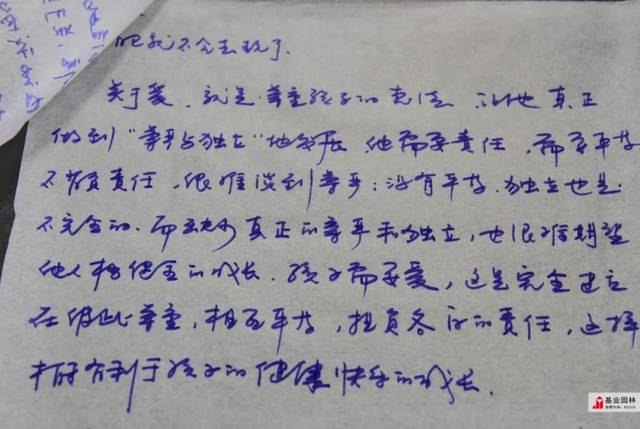 吧我不会去玩了.
关于爱, 就是尊重孩子的责任 让他真正
做到“尊严与独立”地发展 他需要责任, 需要平等
不负责任, 很难谈到尊严; 没有平等, 独立也是
不完全的. 而缺少真正的尊严和独立, 也很难期望
他人格健全的成长. 孩子需要爱, 这是完全建立
在彼此尊重, 相互平等, 担负各自的责任, 这样
才有利于孩子的健康快乐的成长.
基业园林